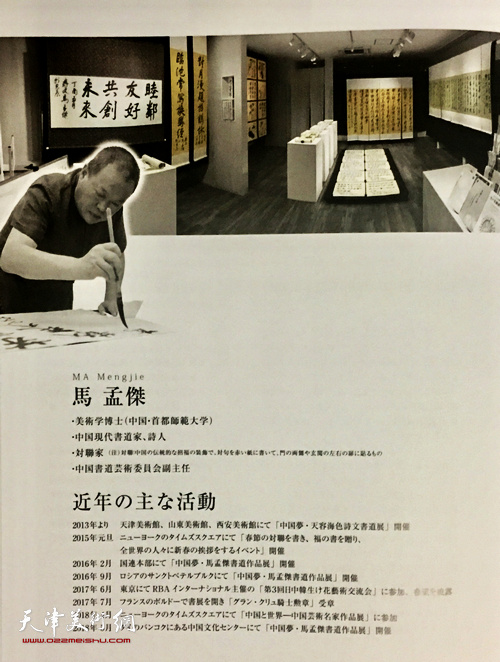 睦鄰
友好
共創
未来
MA Mengjie
馬 孟傑
・美術学博士(中国・首都師範大学)
・中国現代書道家、詩人
・対聯家 (注)対聯:中国の伝統的な招福の装飾で、対句を赤い紙に書いて、門の両側や玄関の左右の扉に貼るもの
・中国書道芸術委員会副主任
近年の主な活動
2013年より 天津美術館、山東美術館、西安美術館にて「中国夢・天容海色詩文書道展」開催
2015年元旦 ニューヨークのタイムズスクエアにて「春節の対聯を書き、福の書を贈り、
全世界の人々に新春の挨拶をするイベント」開催
2016年2月 国連本部にて「中国夢・馬孟傑書道作品展」開催
2016年9月 ロシアのサンクトペテルブルクにて「中国夢・馬孟傑書道作品展」開催
2017年6月 東京にてRBAインターナショナル主催の「第3回日中韓生け花藝術交流会」に参加、
2017年7月 フランスのボルドーで書展を開き「グラン・クリュ騎士勲章」受章
ニューヨークのタイムズスクエアにて「中国と世界―中国芸術名家作品展」に参加
のバンコクにある中国文化センターにて「中国夢・馬孟傑書道作品展」開催
天津美術網
www.022meishu.com